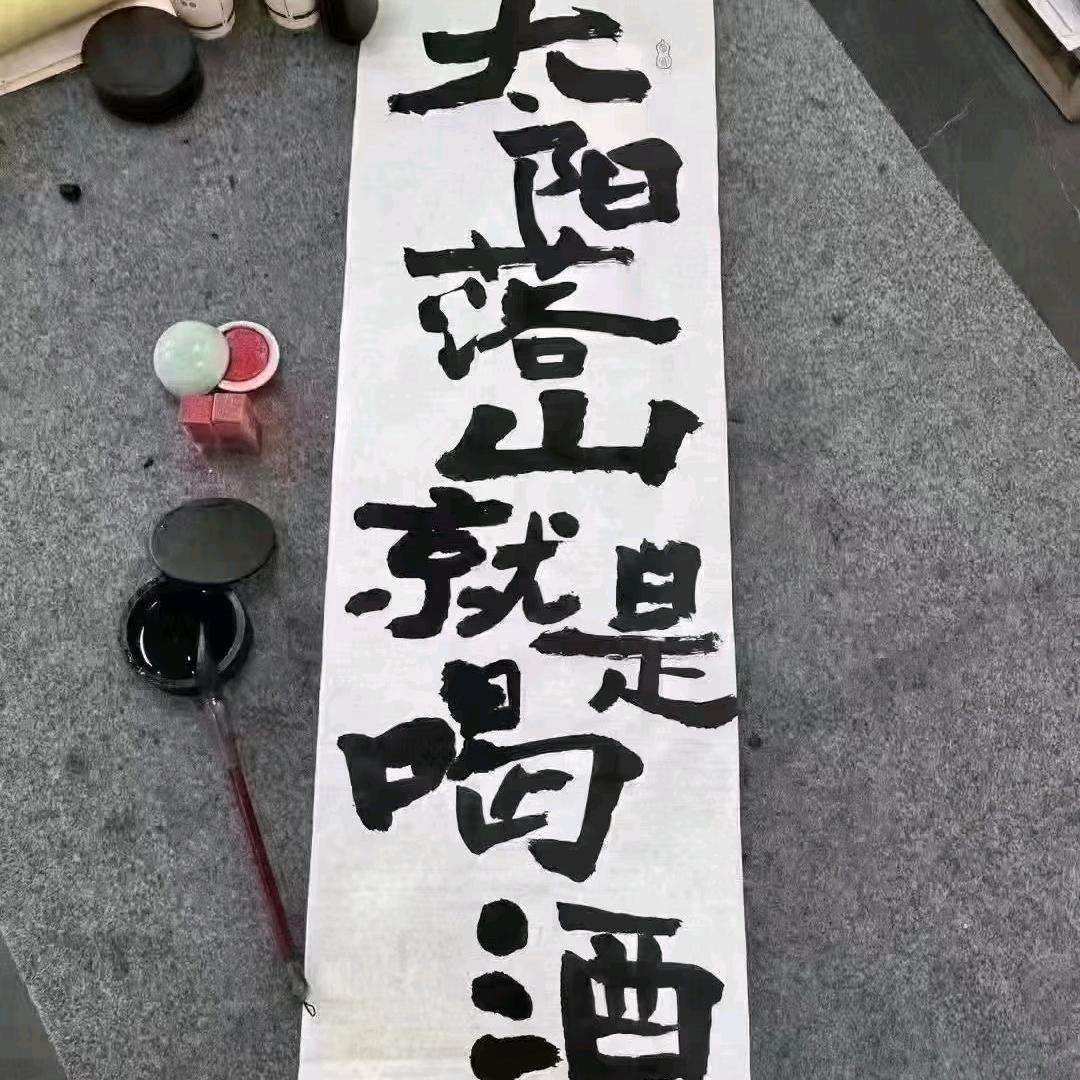 太阳落山就是喝酒